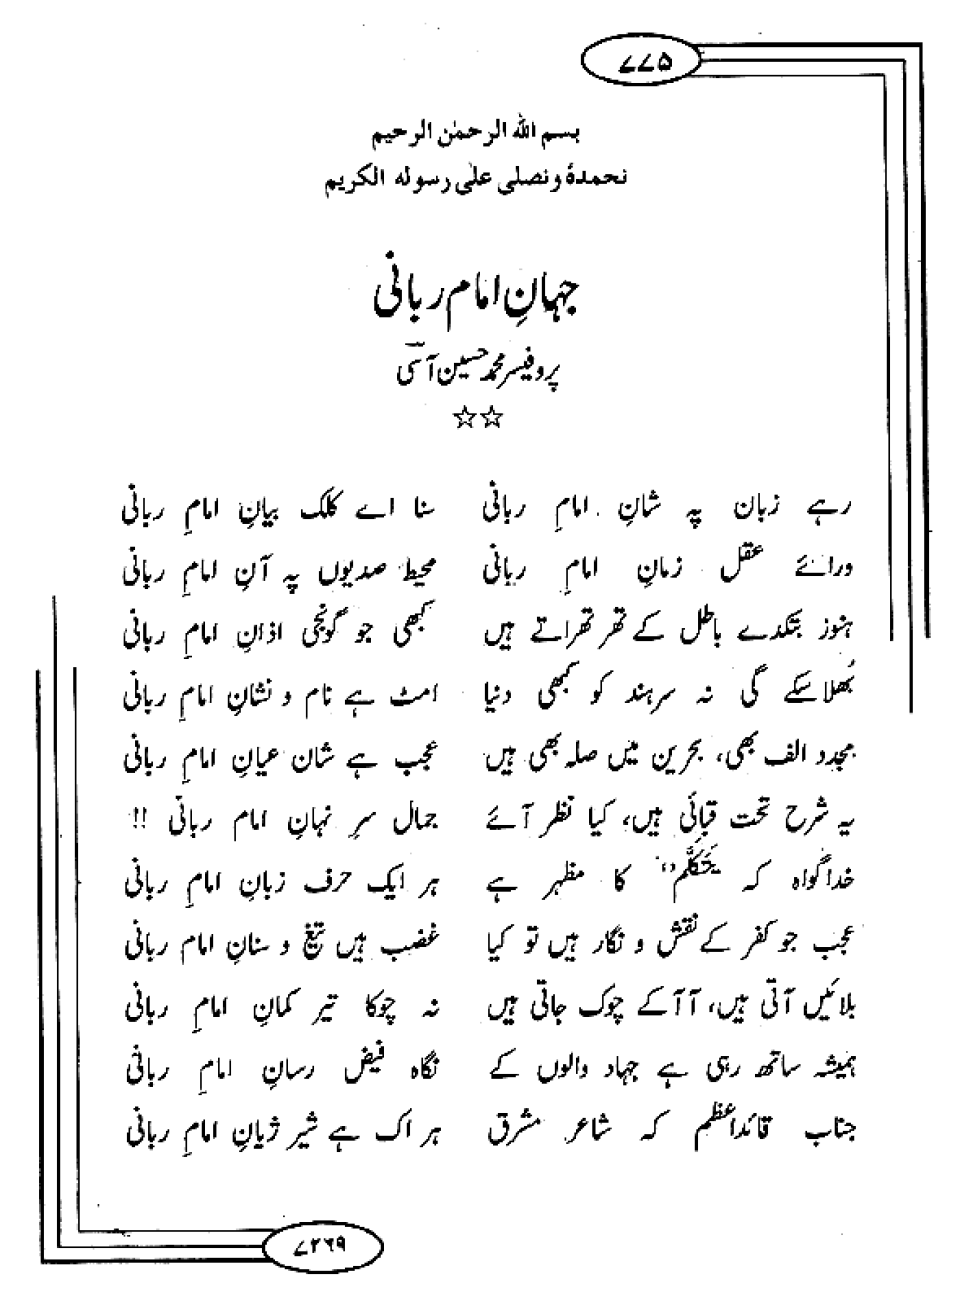 ۷۷۵
بسم الله الرحمٰن الرحیم
نحمدهٗ ونصلی علٰی رسوله الکریم
جہانِ امام ربانی
پروفیسر محمد حسین آسی
☆☆
رہے زبان پہ شانِ امامِ ربانی سنا اے کلک بیانِ امامِ ربانی
ورائے عقل زمانِ امامِ ربانی محیط صدیوں پہ آنِ امامِ ربانی
ہنوز بتکدے باطل کے تھرتھراتے ہیں کبھی جو گونجی اذانِ امامِ ربانی
بُھلا سکے گی نہ سرہند کو کبھی دنیا امٹ ہے نام و نشانِ امامِ ربانی
مجدد الف بھی، بحرین میں صلہ بھی ہیں عجب ہے شان عیانِ امامِ ربانی
یہ شرح تحت قبائی ہیں، کیا نظر آئے جمال سرِ نہانِ امام ربانی !!
خدا گواہ کہ "یتکلّم" کا مظہر ہے ہر ایک حرف زبانِ امامِ ربانی
عجب جو کفر کے نقش و نگار ہیں تو کیا غضب ہیں تیغ و سنانِ امام ربانی
بلائیں آتی ہیں، آ آ کے چوک جاتی ہیں نہ چوکا تیر کمانِ امامِ ربانی
ہمیشہ ساتھ رہی ہے جہاد والوں کے نگاہ فیض رسانِ امامِ ربانی
جناب قائداعظم کہ شاعر مشرق ہر اک ہے شیر ژیانِ امامِ ربانی
۷۲۶۹